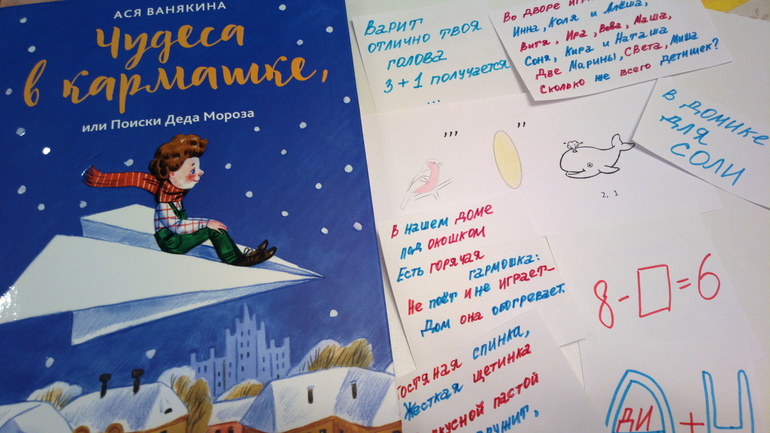 АСЯ ВАНЯКИНА
Чудеса
в кармашке,
или Поиски Деда Мороза
Варит
отлично твоя
голова
3 + 1 получается
...
Во дворе
Инна, Коля и Алёша,
Витя, Ира, Вова, Маша,
Соня, Кира и Наташа
Две Марины, Света, Миша
Сколько же всего детишек?
В домике
для
соли
,,, ,,
2, 1
В нашем доме
под окошком
Есть горячая
гармошка:
Не поёт и не играет-
Дом она обогревает.
8 - □ = 6
Костяная спинка,
Жесткая щетинка
вкусной пастой
ДИ +